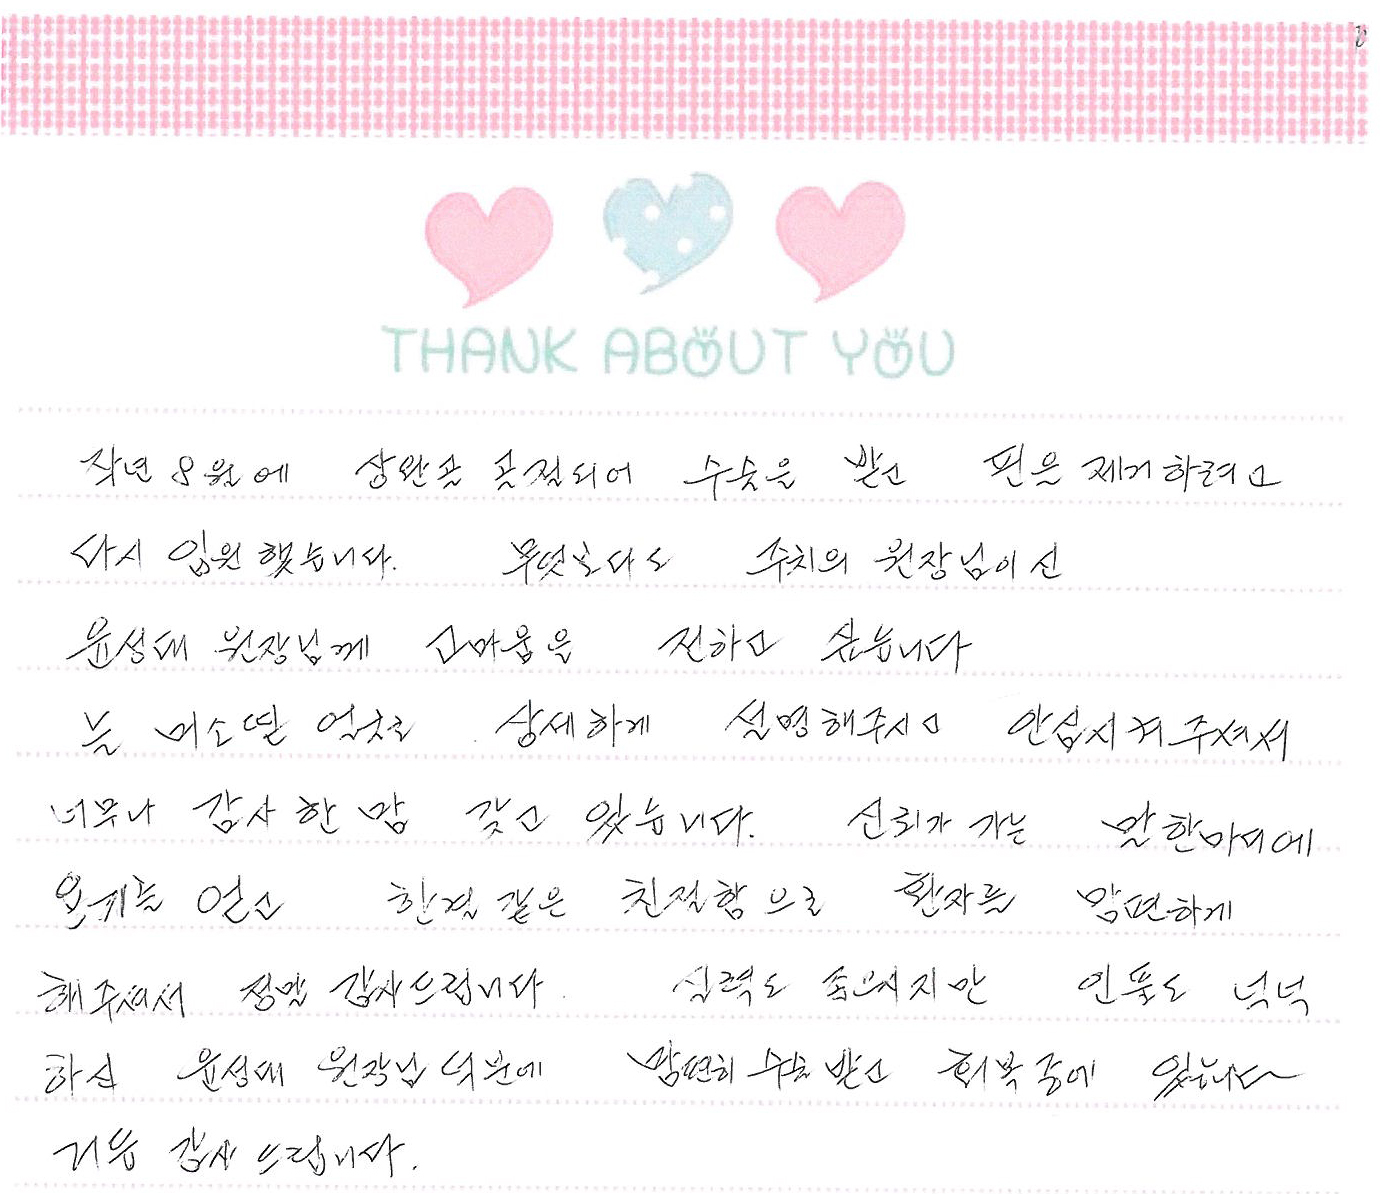 THANK ABOUT YOU
작년 8월에 상완골 골절되어 수술을 받고 핀을 제거하려고
다시 입원했습니다. 무엇보다도 주치의 원장님이신
윤성대 원장님께 고마움을 전하고 싶습니다
늘 미소띤 얼굴로 상세하게 설명해주시고 안심시켜주셔서
너무나 감사한 맘 갖고 있습니다. 신뢰가 가는 말한마디에
용기를 얻고 한결 같은 친절함으로 환자를 맘편하게
해주셔서 정말 감사드립니다. 실력도 좋으시지만 인품도 넉넉
하신 윤성대 원장님 덕분에 맘편히 수술 받고 회복중에 있습니다
거듭 감사드립니다.